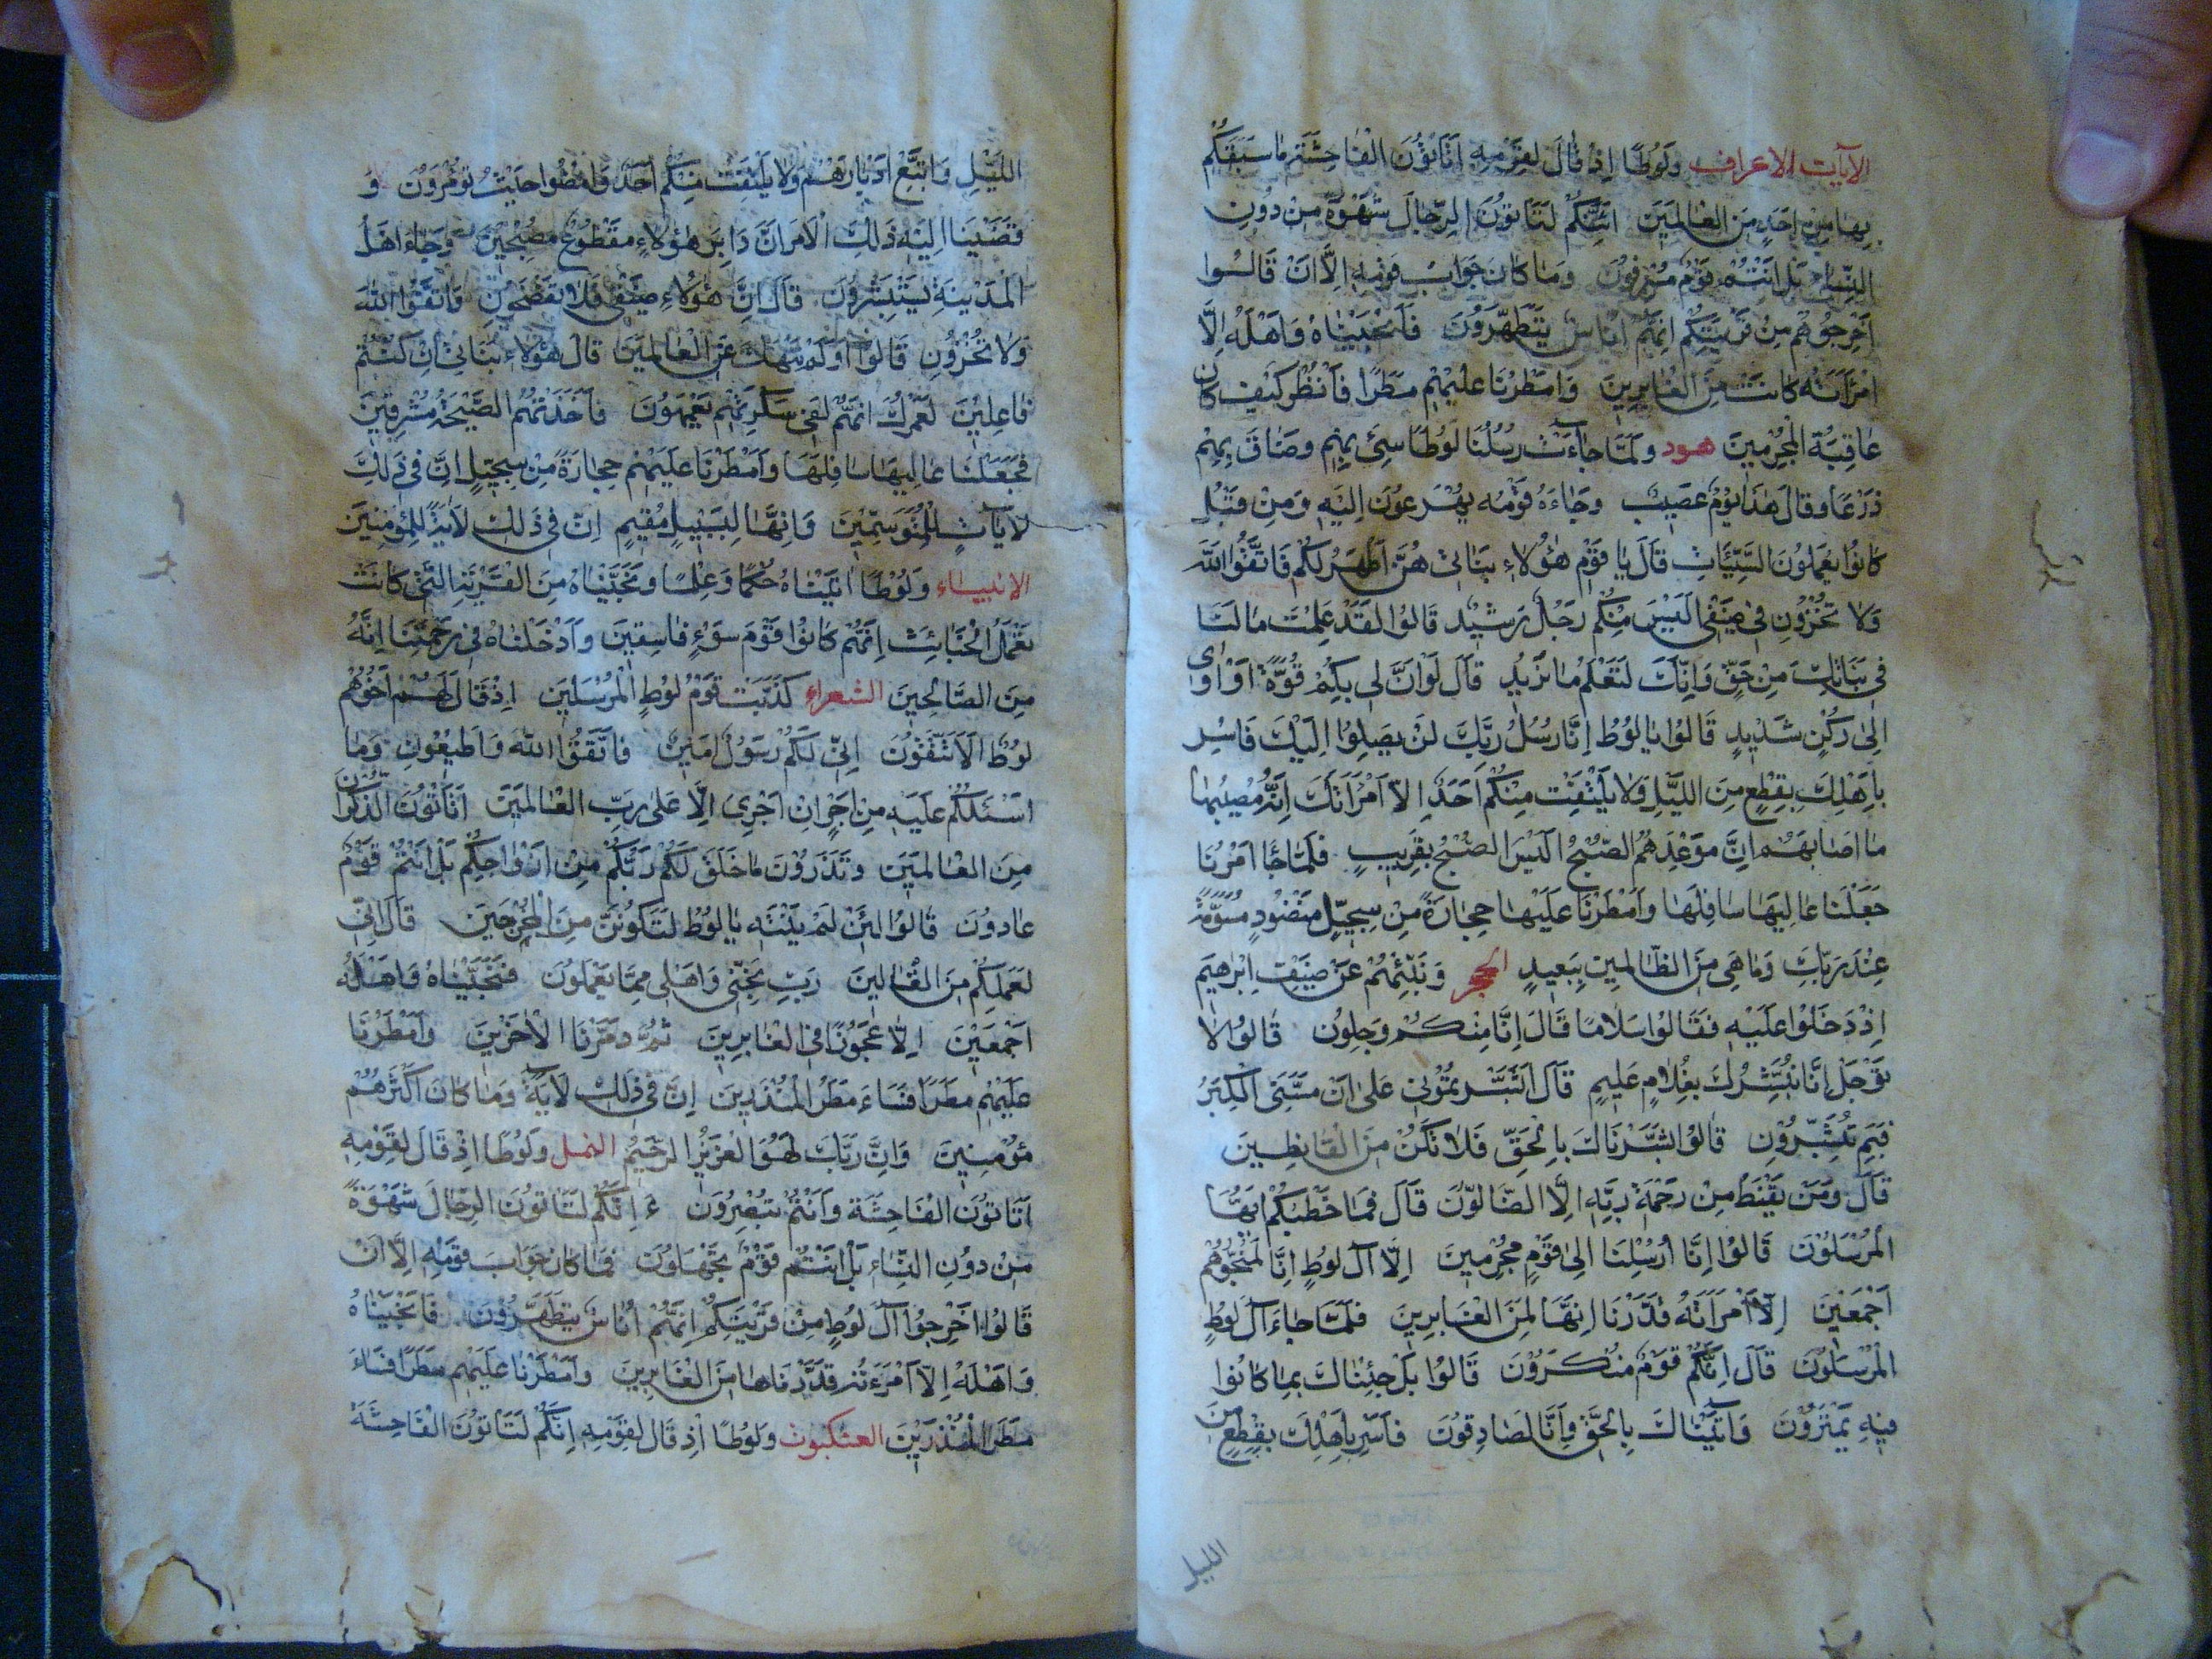 الآيات الاعراف وَلُوطًا اِذْ قَالَ لِقَوْمِهِ اَتَأْتُونَ الْفَاحِشَةَ مَا سَبَقَكُمْ
بِهَا مِنْ اَحَدٍ مِنَ الْعَالَمِينَ اَئِنَّكُمْ لَتَأْتُونَ الرِّجَالَ شَهْوَةً مِنْ دُونِ
النِّسَاءِ بَلْ اَنْتُمْ قَوْمٌ مُسْرِفُونَ وَمَا كَانَ جَوَابَ قَوْمِهِ اِلَّا اَنْ قَالُوا
اَخْرِجُوهُمْ مِنْ قَرْيَتِكُمْ اِنَّهُمْ اُنَاسٌ يَتَطَهَّرُونَ فَاَنْجَيْنَاهُ وَاَهْلَهُ اِلَّا
امْرَاَتَهُ كَانَتْ مِنَ الْغَابِرِينَ وَاَمْطَرْنَا عَلَيْهِمْ مَطَرًا فَانْظُرْ كَيْفَ كَانَ
عَاقِبَةُ الْمُجْرِمِينَ هود وَلَمَّا جَاءَتْ رُسُلُنَا لُوطًا سِئَ بِهِمْ وَضَاقَ بِهِمْ
ذَرْعًا وَقَالَ هَذَا يَوْمٌ عَصِيبٌ وَجَاءَهُ قَوْمُهُ يُهْرَعُونَ اِلَيْهِ وَمِنْ قَبْلُ
كَانُوا يَعْمَلُونَ السَّيِّئَاتِ قَالَ يَا قَوْمِ هَؤُلَاءِ بَنَاتِي هُنَّ اَطْهَرُ لَكُمْ فَاتَّقُوا اللَّهَ
وَلَا تُخْزُونِ فِي ضَيْفِي اَلَيْسَ مِنْكُمْ رَجُلٌ رَشِيدٌ قَالُوا لَقَدْ عَلِمْتَ مَا لَنَا
فِي بَنَاتِكَ مِنْ حَقٍّ وَاِنَّكَ لَتَعْلَمُ مَا نُرِيدُ قَالَ لَوْ اَنَّ لِي بِكُمْ قُوَّةً اَوْ اٰوِي
اِلَى رُكْنٍ شَدِيدٍ قَالُوا يَا لُوطُ اِنَّا رُسُلُ رَبِّكَ لَنْ يَصِلُوا اِلَيْكَ فَاَسْرِ
بِاَهْلِكَ بِقِطْعٍ مِنَ اللَّيْلِ وَلَا يَلْتَفِتْ مِنْكُمْ اَحَدٌ اِلَّا امْرَاَتَكَ اِنَّهُ مُصِيبُهَا
مَا اَصَابَهُمْ اِنَّ مَوْعِدَهُمُ الصُّبْحُ اَلَيْسَ الصُّبْحُ بِقَرِيبٍ فَلَمَّا جَا اَمْرُنَا
جَعَلْنَا عَالِيَهَا سَافِلَهَا وَاَمْطَرْنَا عَلَيْهَا حِجَارَةً مِنْ سِجِّيلٍ مَنْضُودٍ مُسَوَّمَةً
عِنْدَ رَبِّكَ وَمَا هِيَ مِنَ الظَّالِمِينَ بِبَعِيدٍ الحجر وَنَبِّئْهُمْ عَنْ ضَيْفِ اِبْرٰهِيمَ
اِذْ دَخَلُوا عَلَيْهِ فَقَالُوا سَلَامًا قَالَ اِنَّا مِنْكُمْ وَجِلُونَ قَالُوا لَا
تَوْجَلْ اِنَّا نُبَشِّرُكَ بِغُلَامٍ عَلِيمٍ قَالَ اَبَشَّرْتُمُونِي عَلَى اَنْ مَسَّنِيَ الْكِبَرُ
فَبِمَ تُبَشِّرُونِ قَالُوا بَشَّرْنَاكَ بِالْحَقِّ فَلَا تَكُنْ مِنَ الْقَانِطِينَ
قَالَ وَمَنْ يَقْنَطُ مِنْ رَحْمَةِ رَبِّهِ اِلَّا الضَّالُّونَ قَالَ فَمَا خَطْبُكُمْ اَيُّهَا
الْمُرْسَلُونَ قَالُوا اِنَّا اُرْسِلْنَا اِلَى قَوْمٍ مُجْرِمِينَ اِلَّا اٰلَ لُوطٍ اِنَّا لَمُنَجُّوهُمْ
اَجْمَعِينَ اِلَّا امْرَاَتَهُ قَدَّرْنَا اِنَّهَا لَمِنَ الْغَابِرِينَ فَلَمَّا جَاءَ اٰلَ لُوطٍ
الْمُرْسَلُونَ قَالَ اِنَّكُمْ قَوْمٌ مُنْكَرُونَ قَالُوا بَلْ جِئْنَاكَ بِمَا كَانُوا
فِيهِ يَمْتَرُونَ وَاَتَيْنَاكَ بِالْحَقِّ وَاِنَّا لَصَادِقُونَ فَاَسْرِ بِاَهْلِكَ بِقِطْعٍ مِنَ
الليل
اللَّيْلِ وَاتَّبِعْ اَدْبَارَهُمْ وَلَا يَلْتَفِتْ مِنْكُمْ اَحَدٌ وَامْضُوا حَيْثُ تُؤْمَرُونَ وَ
قَضَيْنَا اِلَيْهِ ذَلِكَ الْاَمْرَ اَنَّ دَابِرَ هَؤُلَاءِ مَقْطُوعٌ مُصْبِحِينَ وَجَاءَ اَهْلُ
الْمَدِينَةِ يَسْتَبْشِرُونَ قَالَ اِنَّ هَؤُلَاءِ ضَيْفِي فَلَا تَفْضَحُونِ وَاتَّقُوا اللَّهَ
وَلَا تُخْزُونِ قَالُوا اَوَلَمْ نَنْهَكَ عَنِ الْعَالَمِينَ قَالَ هَؤُلَاءِ بَنَاتِي اِنْ كُنْتُمْ
فَاعِلِينَ لَعَمْرُكَ اِنَّهُمْ لَفِي سَكْرَتِهِمْ يَعْمَهُونَ فَاَخَذَتْهُمُ الصَّيْحَةُ مُشْرِقِينَ
فَجَعَلْنَا عَالِيَهَا سَافِلَهَا وَاَمْطَرْنَا عَلَيْهِمْ حِجَارَةً مِنْ سِجِّيلٍ اِنَّ فِي ذَلِكَ
لَآيَاتٍ لِلْمُتَوَسِّمِينَ وَاِنَّهَا لَبِسَبِيلٍ مُقِيمٍ اِنَّ فِي ذَلِكَ لَآيَةً لِلْمُؤْمِنِينَ
الانبياء وَلُوطًا اٰتَيْنَاهُ حُكْمًا وَعِلْمًا وَنَجَّيْنَاهُ مِنَ الْقَرْيَةِ الَّتِي كَانَتْ
تَعْمَلُ الْخَبَائِثَ اِنَّهُمْ كَانُوا قَوْمَ سَوْءٍ فَاسِقِينَ وَاَدْخَلْنَاهُ فِي رَحْمَتِنَا اِنَّهُ
مِنَ الصَّالِحِينَ الشعراء كَذَّبَتْ قَوْمُ لُوطٍ الْمُرْسَلِينَ اِذْ قَالَ لَهُمْ اَخُوهُمْ
لُوطٌ اَلَا تَتَّقُونَ اِنِّي لَكُمْ رَسُولٌ اَمِينٌ فَاتَّقُوا اللَّهَ وَاَطِيعُونِ وَمَا
اَسْئَلُكُمْ عَلَيْهِ مِنْ اَجْرٍ اِنْ اَجْرِيَ اِلَّا عَلَى رَبِّ الْعَالَمِينَ اَتَأْتُونَ الذُّكْرَانَ
مِنَ الْعَالَمِينَ وَتَذَرُونَ مَا خَلَقَ لَكُمْ رَبُّكُمْ مِنْ اَزْوَاجِكُمْ بَلْ اَنْتُمْ قَوْمٌ
عَادُونَ قَالُوا لَئِنْ لَمْ تَنْتَهِ يَا لُوطُ لَتَكُونَنَّ مِنَ الْمُخْرَجِينَ قَالَ اِنِّي
لِعَمَلِكُمْ مِنَ الْقَالِينَ رَبِّ نَجِّنِي وَاَهْلِي مِمَّا يَعْمَلُونَ فَنَجَّيْنَاهُ وَاَهْلَهُ
اَجْمَعِينَ اِلَّا عَجُوزًا فِي الْغَابِرِينَ ثُمَّ دَمَّرْنَا الْاٰخَرِينَ وَاَمْطَرْنَا
عَلَيْهِمْ مَطَرًا فَسَاءَ مَطَرُ الْمُنْذَرِينَ اِنَّ فِي ذَلِكَ لَآيَةً وَمَا كَانَ اَكْثَرُهُمْ
مُؤْمِنِينَ وَاِنَّ رَبَّكَ لَهُوَ الْعَزِيزُ الرَّحِيمُ النمل وَلُوطًا اِذْ قَالَ لِقَوْمِهِ
اَتَأْتُونَ الْفَاحِشَةَ وَاَنْتُمْ تُبْصِرُونَ ءَ اِنَّكُمْ لَتَأْتُونَ الرِّجَالَ شَهْوَةً
مِنْ دُونِ النِّسَاءِ بَلْ اَنْتُمْ قَوْمٌ تَجْهَلُونَ فَمَا كَانَ جَوَابَ قَوْمِهِ اِلَّا اَنْ
قَالُوا اَخْرِجُوا اٰلَ لُوطٍ مِنْ قَرْيَتِكُمْ اِنَّهُمْ اُنَاسٌ يَتَطَهَّرُونَ فَاَنْجَيْنَاهُ
وَاَهْلَهُ اِلَّا امْرَءَتَهُ قَدَّرْنَاهَا مِنَ الْغَابِرِينَ وَاَمْطَرْنَا عَلَيْهِمْ مَطَرًا فَسَاءَ
مَطَرُ الْمُنْذَرِينَ العنكبوت وَلُوطًا اِذْ قَالَ لِقَوْمِهِ اِنَّكُمْ لَتَأْتُونَ الْفَاحِشَةَ